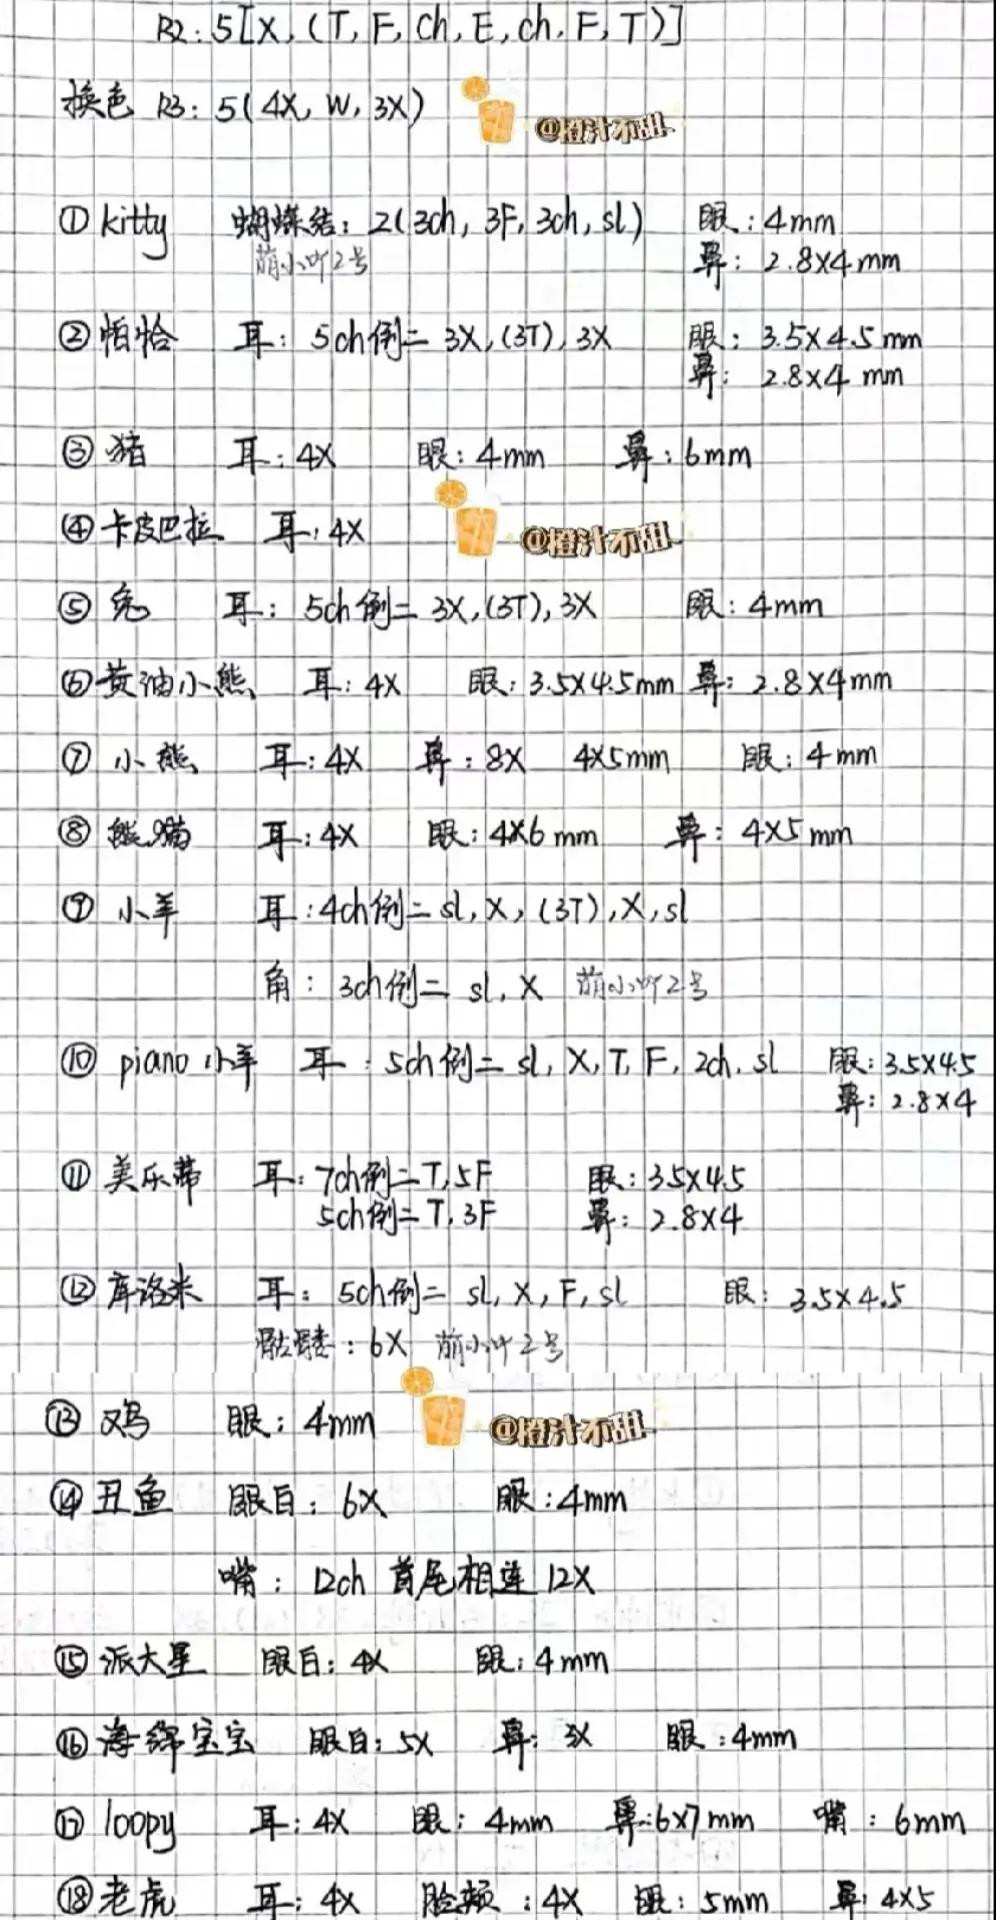 R2: 5[X, (T, F, ch, E, ch, F, T)]
换色 R3: 5(4X, W, 3X)
@橙汁不甜
① kitty 蝴蝶结: 2(3ch, 3F, 3ch, sl) 眼: 4mm
萌小吖2号 鼻: 2.8X4mm
② 帕恰 耳: 5ch倒二 3X, (3T), 3X 眼: 3.5X4.5mm
鼻: 2.8X4 mm
③ 猪 耳: 4X 眼: 4mm 鼻: 6mm
④ 卡皮巴拉 耳: 4X
@橙汁不甜
⑤ 兔 耳: 5ch倒二 3X, (3T), 3X 眼: 4mm
⑥ 黄油小熊 耳: 4X 眼: 3.5X4.5mm 鼻: 2.8X4mm
⑦ 小熊 耳: 4X 鼻: 8X 4X5mm 眼: 4mm
⑧ 熊猫 耳: 4X 眼: 4X6mm 鼻: 4X5mm
⑨ 小羊 耳: 4ch倒二 sl, X, (3T), X, sl
角: 3ch倒二 sl, X 萌小吖2号
⑩ piano小羊 耳: 5ch倒二 sl, X, T, F, 2ch, sl 眼: 3.5X4.5
鼻: 2.8X4
⑪ 美乐蒂 耳: 7ch倒二T, 5F 眼: 3.5X4.5
5ch倒二T, 3F 鼻: 2.8X4
⑫ 库洛米 耳: 5ch倒二 sl, X, F, sl 眼: 3.5X4.5
骷髅: 6X 萌小吖2号
⑬ 鸡 眼: 4mm
@橙汁不甜
⑭ 丑鱼 眼白: 6X 眼: 4mm
嘴: 12ch 首尾相连 12X
⑮ 派大星 眼白: 4X 眼: 4mm
⑯ 海绵宝宝 眼白: 5X 鼻: 3X 眼: 4mm
⑰ loopy 耳: 4X 眼: 4mm 鼻: 6X7mm 嘴: 6mm
⑱ 老虎 耳: 4X 脸颊: 4X 眼: 5mm 鼻: 4X5